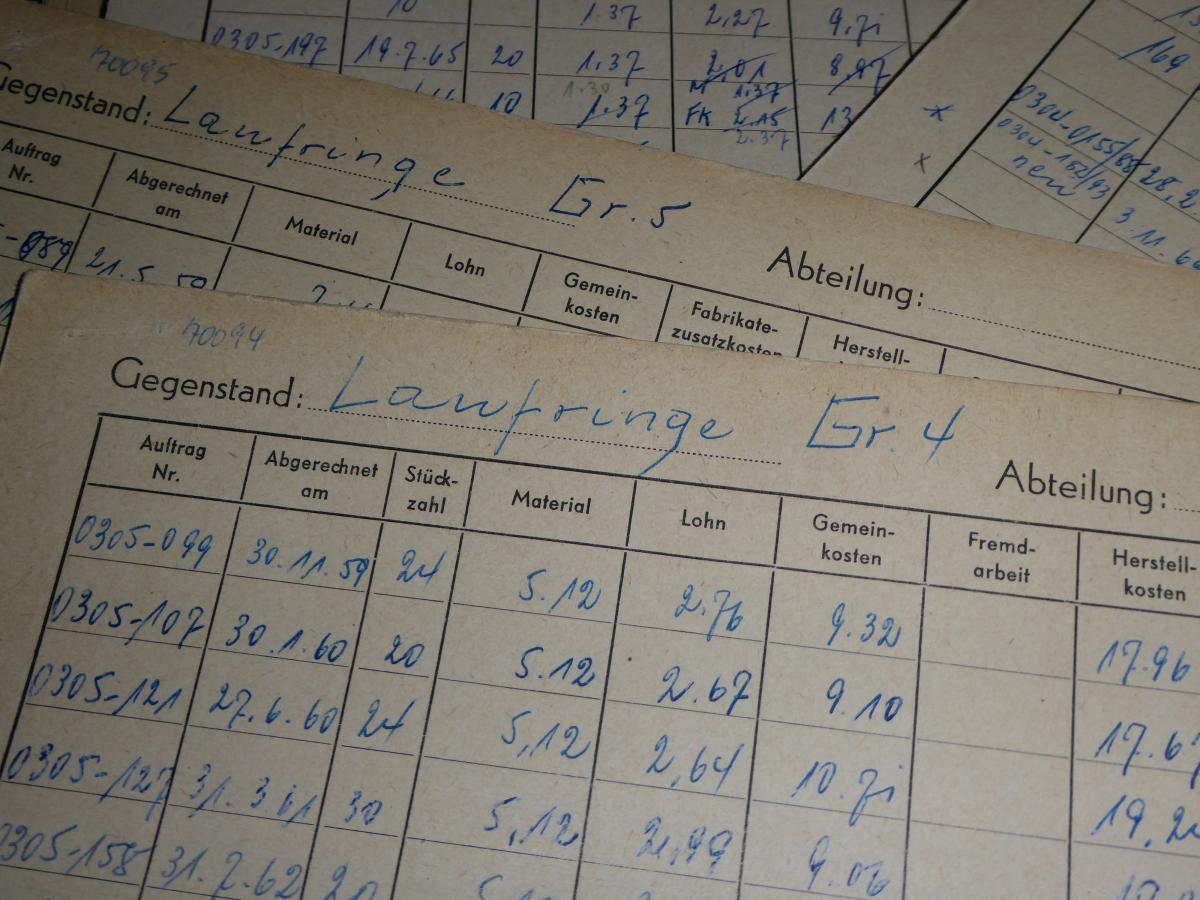 10 1.37 2,27 9,71
0305-197 19.7.65 20 1,37 2,01 8,97
1.30 M 1.37
10 1.37 FK 2.15 13
2.37
169
0304-0155/88 28,2
0304-162/93
neu 3.11.66
70095
Gegenstand: Laufringe Gr. 5 Abteilung:
Auftrag Nr. Abgerechnet am Material Lohn Gemein-kosten Fabrikate-zusatzkosten Herstell-
-089 21.5.59
70094
Gegenstand: Laufringe Gr. 4 Abteilung:
Auftrag Abgerechnet Stück- Material Lohn Gemein- Fremd- Herstell-
Nr. am zahl kosten arbeit kosten
0305-099 30.11.59 24 5.12 2.76 9.32 17.96
0305-107 30.1.60 20 5.12 2.67 9.10 17.6
0305-121 27.6.60 24 5,12 2,64 10.71 19,2
0305-127 31.3.61 30 5,12 2,99 9.06
0305-158 31.7.62 20